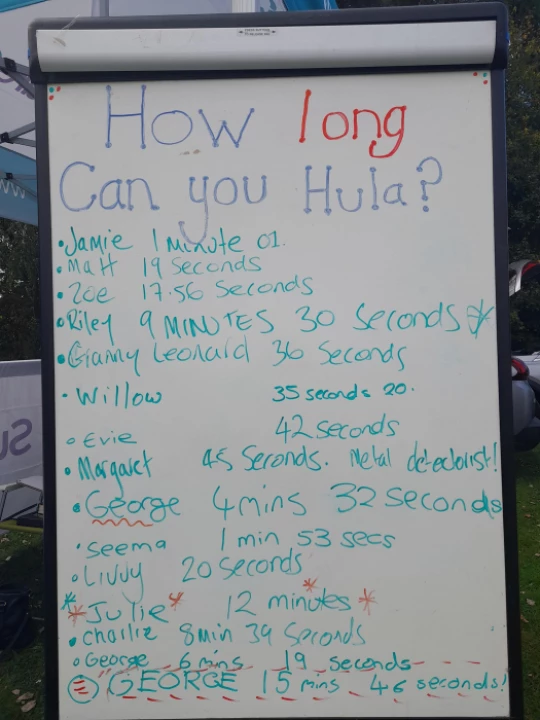 How long
Can you Hula?
• Jamie 1 Minute 01.
• Matt 19 Seconds
• Zoe 17:56 Seconds
• Riley 9 MINUTES 30 Seconds *
• Granny Leonard 36 Seconds
• Willow 35 seconds 20.
• Evie 42 seconds
• Margaret 45 Seconds. Metal detectorist!
• George 4 mins 32 Seconds
• Seema 1 min 53 secs
• Livvy 20 Seconds
* * Julie * 12 minutes * *
• Charlie 8 min 39 Seconds
• George 6 mins 19 seconds
GEORGE 15 mins 46 seconds!
Su